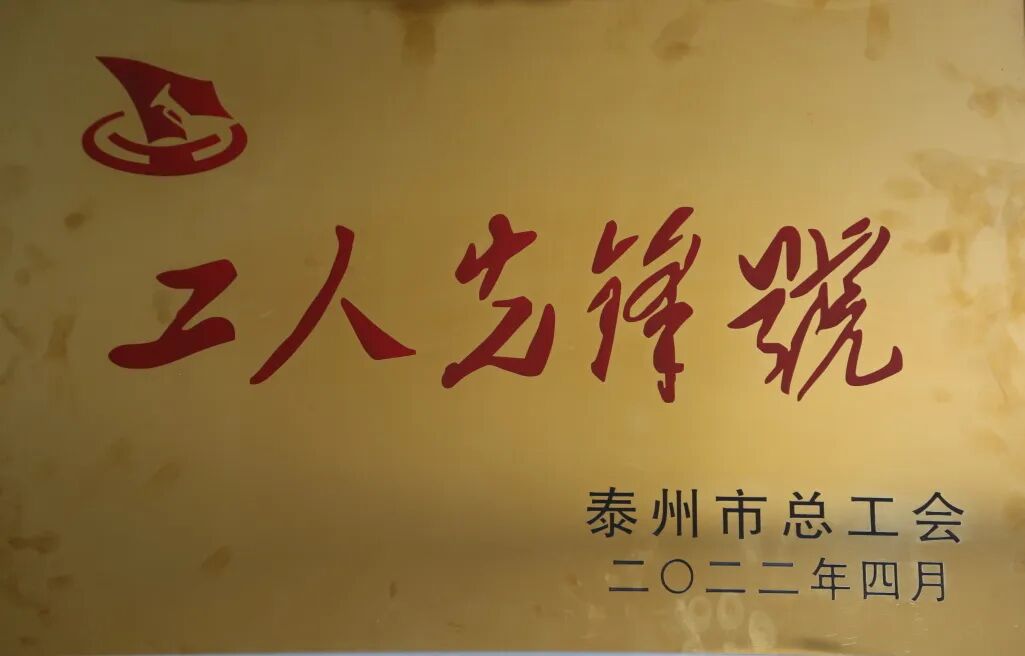 工人先锋號
泰州市总工会
二〇二二年四月